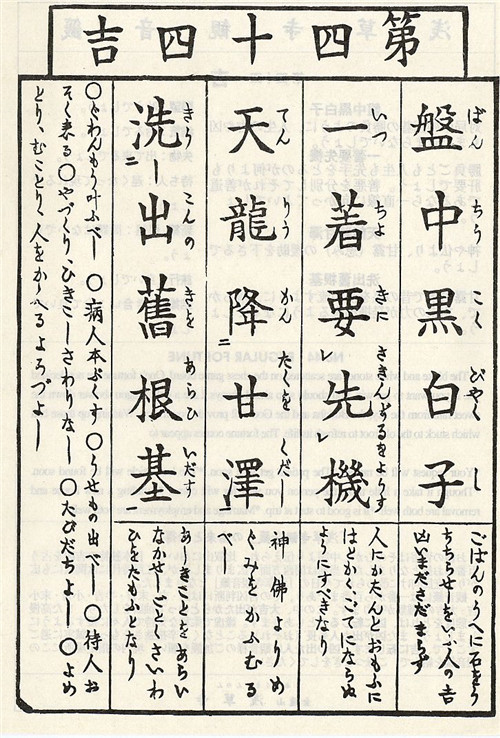 第四十四吉
盤中黒白子
ばん ちう こく びやく し
ごばんのうへに石をう
ちちらせしを、人の吉
凶いまださだまらず
一着要レ先レ機
いつ ちよ きに さきんずるをようす
人にかたんとおもふに
は、
ようにすべきなり
天龍降二甘澤一
てん りう かん たくを くだし
神佛よりめ
ぐみをかふむる
洗二出舊根基一
きう こんの きを あらひ いだす
あしきことをあらい
なかせしごとくさいわ
ひをたもふとなり
〇ぐわんもう叶ふべし 〇病人本ぷくす 〇うせもの出べし 〇待人お
そく来る 〇やづくりひきこしさわりなし 〇たびだちよし 〇よめ
とり、むことり、人をかゝへるよろづよし